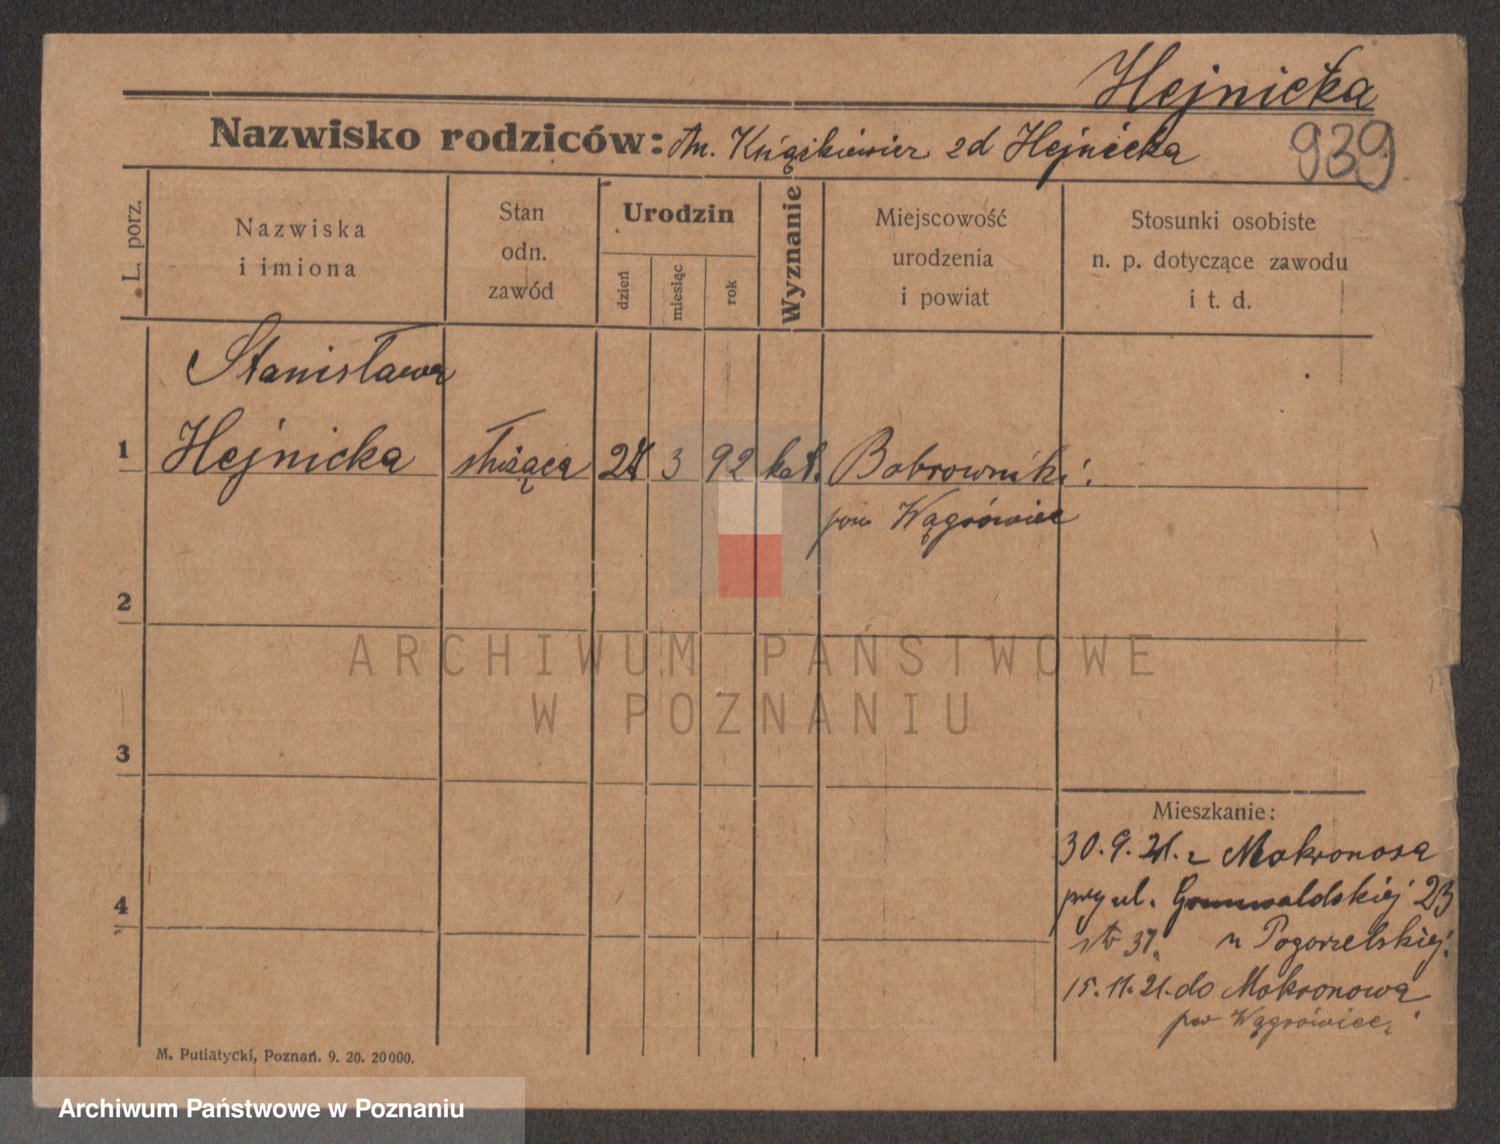 Hejnicka
Nazwisko rodziców: An. Książkiewicz 2d Hejnicka
939
L. porz.
Nazwiska
i imiona
Stan
odn.
zawód
Urodzin
dzień
miesiąc
rok
Wyznanie
Miejscowość
urodzenia
i powiat
Stosunki osobiste
n. p. dotyczące zawodu
i t. d.
Stanisława
1 Hejnicka służąca 3 92 kat. Bobrowniki
pow Wągrówiec
2
ARCHIWUM PAŃSTWOWE
W POZNANIU
3
Mieszkanie:
30.9.21. z Mokronosa
przy ul. Grunwaldskiej 23
4
37. u Pogorzelskiej.
15.11.21. do Mokronowa
pow Wągrówiec.
M. Putiatycki, Poznań. 9. 20. 20000.
Archiwum Państwowe w Poznaniu